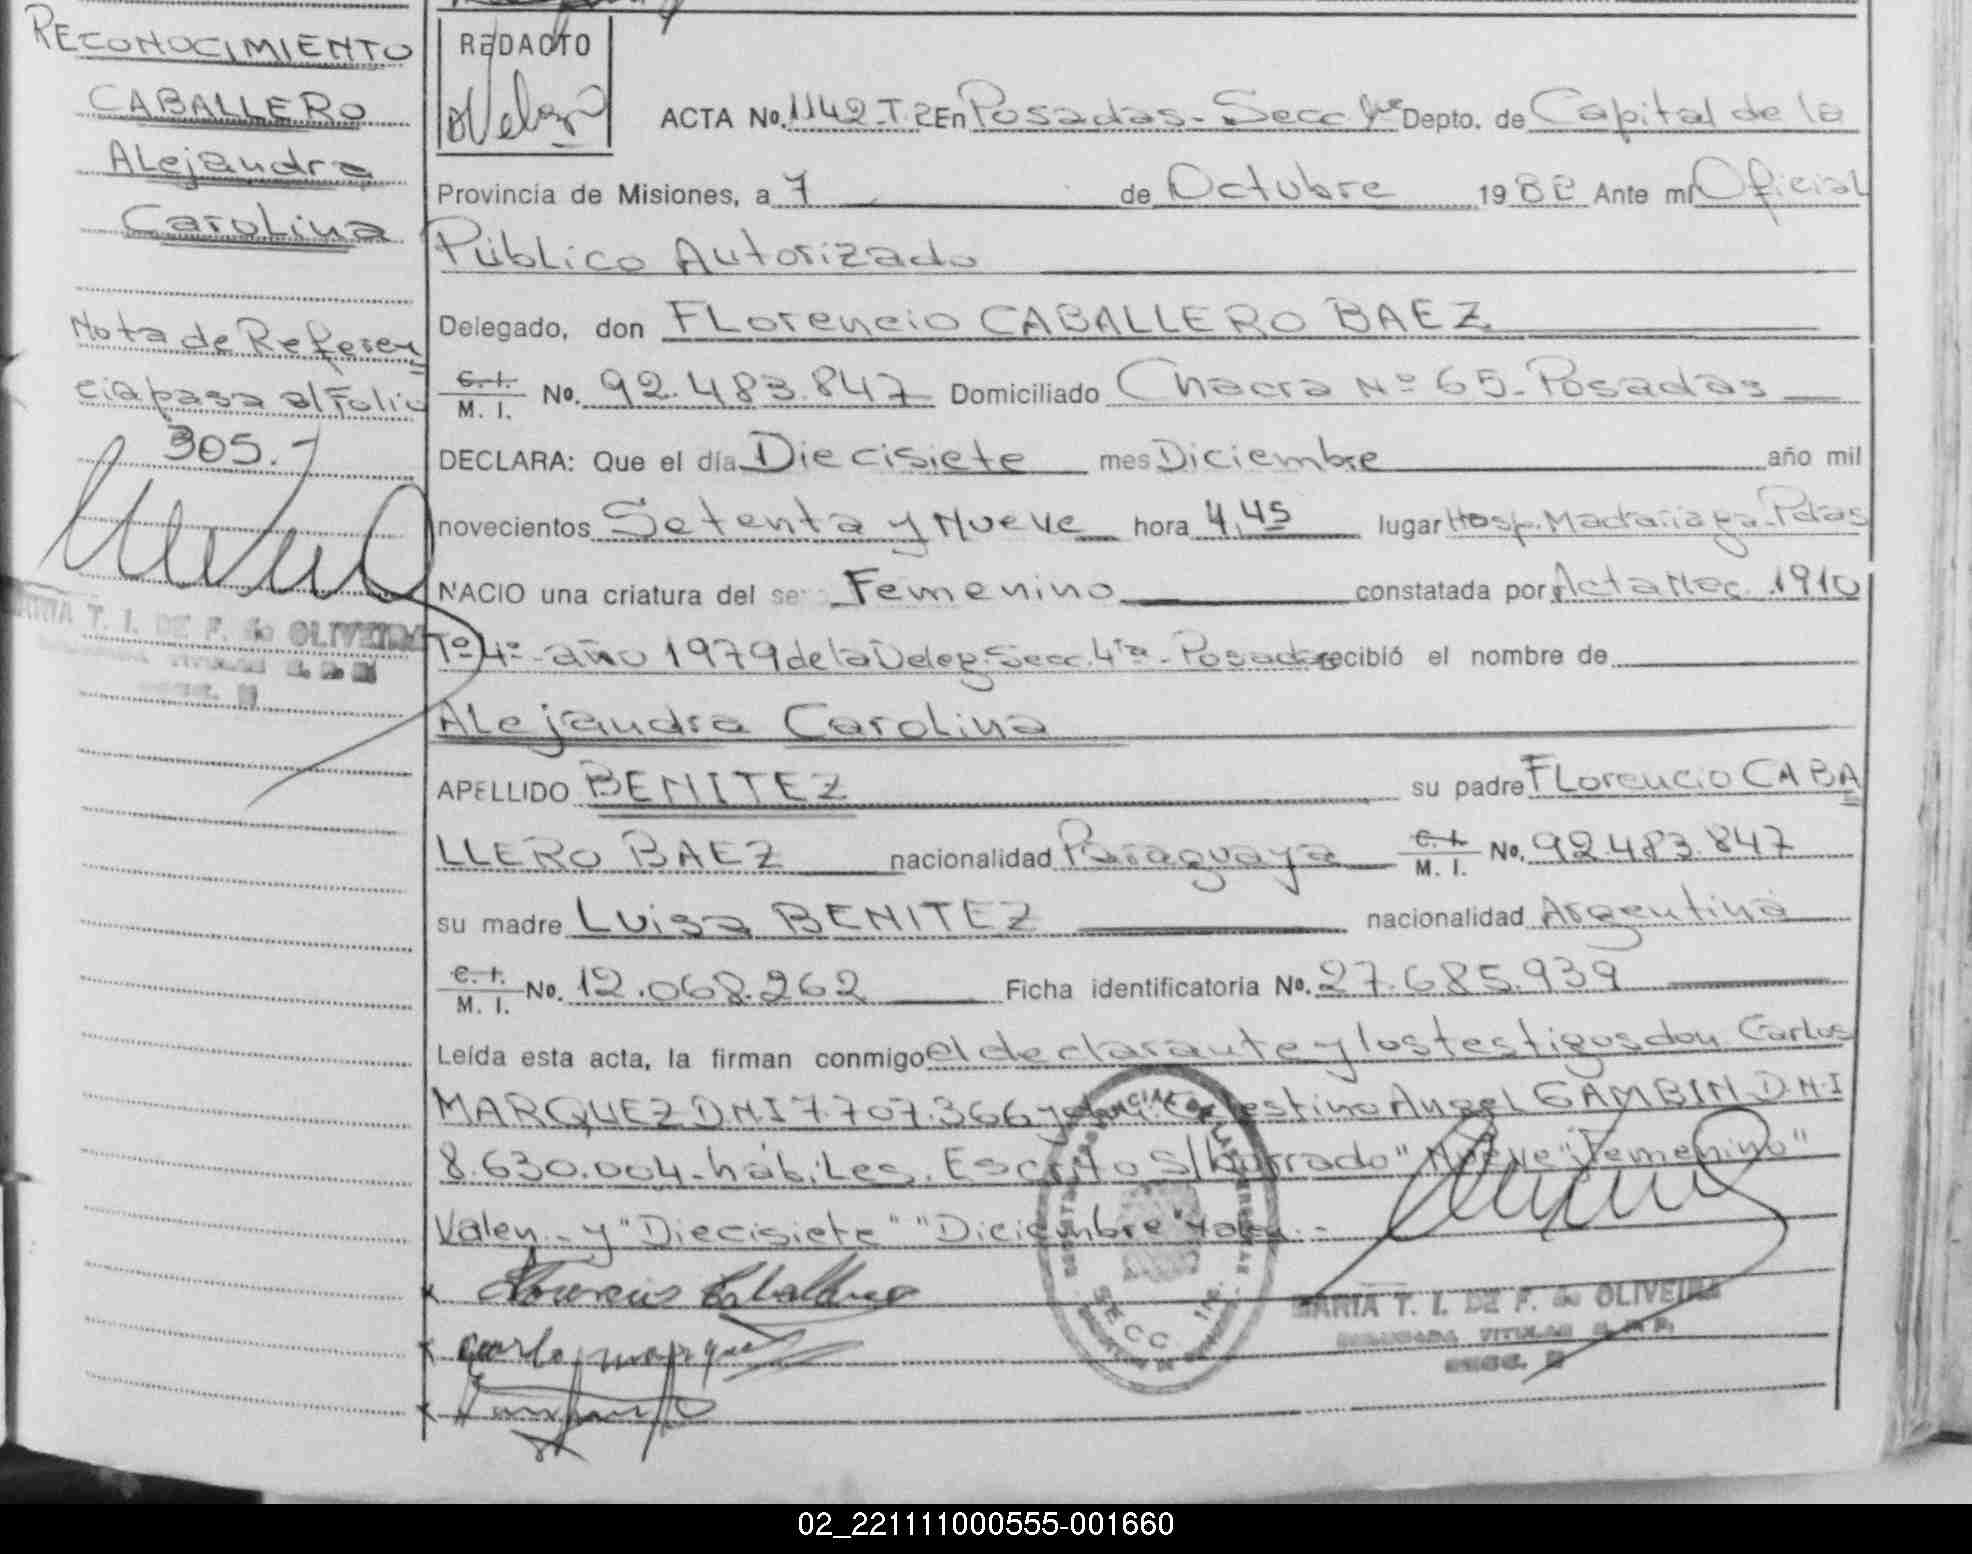 RECONOCIMIENTO
CABALLERO
ALejandra
Carolina
Nota de Referen
cia pasa al Folio
305.-
MARIA T. I. DE F. de OLIVEIRA
REDACTO
ACTA No. 1142-T.2 En Posadas-Secc 1ra Depto. de Capital de la
Provincia de Misiones, a 7 de Octubre 1982 Ante mí Oficial
Público Autorizado
Delegado, don FLorencio CABALLERO BAEZ
C. I. M. I. No. 92.483.847 Domiciliado Chacra Nº 65-Posadas
DECLARA: Que el día Diecisiete mes Diciembre año mil
novecientos Setenta y Nueve hora 4,45 lugar Hosp. Madariaga-Pdas
NACIO una criatura del se Femenino constatada por Acta Nac. 1910
Tº 4º-año 1979 de la Deleg. Secc. 4ta-Posadas recibió el nombre de
ALejandra Carolina
APELLIDO BENITEZ su padre FLorencio CABA
LLERO BAEZ nacionalidad Paraguaya C. I. M. I. No. 92.483.847
su madre Luisa BENITEZ nacionalidad Argentina
C. I. M. I. No. 12.068.262 Ficha identificatoria No. 27.685.939
Leída esta acta, la firman conmigo el declarante y los testigos don Carlos
MARQUEZ D.N.I 7.707.366 y don Celestino Angel GAMBIN D.N.I
8.630.004-hábiles. Escrito s/borrado "Nueve" "Femenino"
Valen.- y "Diecisiete" "Diciembre" Valen.-
SECC. 1ra.
MARIA T. I. DE F. de OLIVEIRA
02_221111000555-001660